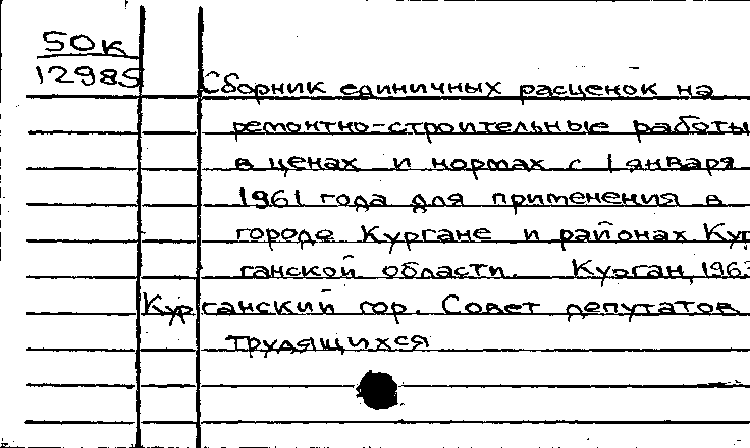 50к
12985
Сборник единичных расценок на
ремонтно-строительные работы
в ценах и нормах с 1 января
1961 года для применения в
городе Кургане и районах Кур
ганской области. Курган, 196
Курганский гор. Совет депутатов
трудящихся